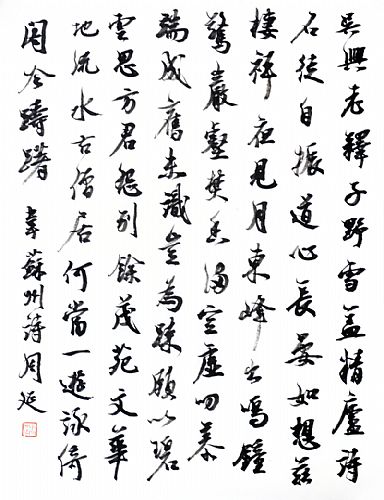 吳興老釋子野雪盖精廬詩
名徒自振道心長晏如想兹
棲禅夜見月東峰初鳴鐘
驚巖壑焚香滿空虚叨慕
端成舊未識豈為疎願以碧
雲思方君怨別餘茂苑文華
地流水古僧居何當一遊詠倚
閣吟躊躇 韋蘇州詩周延